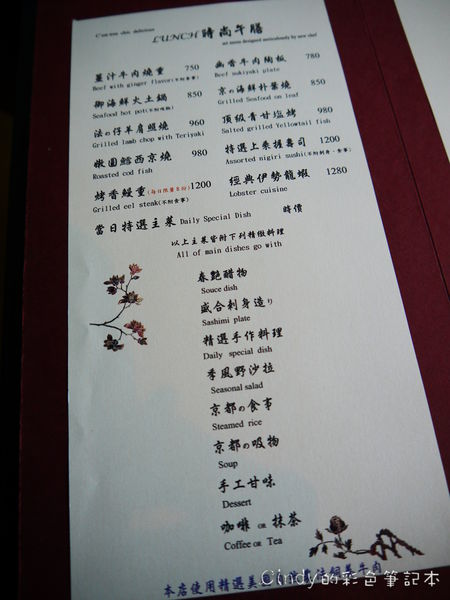 C'est tout chic, delicious
LUNCH 時尚午膳
set menu designed meticulously by new chef
薑汁牛肉燒重 750
Beef with ginger flavor(不附食事)
御海鮮火土鍋 850
Seafood hot pot(不附吸物)
法の仔羊肩照燒 960
Grilled lamb chop with Teriyaki
嫩圓鱈西京燒 980
Roasted cod fish
烤香鰻重(每日限量8份)1200
Grilled eel steak(不附食事)
幽香牛肉陶板 780
Beef sukiyaki plate
京の海鮮朴葉燒 850
Grilled Seafood on leaf
頂級青甘塩烤 980
Salted grilled Yellowtail fish
特選上乘握壽司 1200
Assorted nigiri sushi(不附刺身、食事)
經典伊勢龍蝦 1280
Lobster cuisine
當日特選主菜 Daily Special Dish 時價
以上主菜皆附下列精緻料理
All of main dishes go with
春艷醋物
Souce dish
盛合刺身造り
Sashimi plate
精選手作料理
Daily special dish
季風野沙拉
Seasonal salad
京都の食事
Steamed rice
京都の吸物
Soup
手工甘味
Dessert
咖啡 OR 抹茶
Coffee OR Tea
本店使用精選美
牛肉
©indy的彩色筆記本